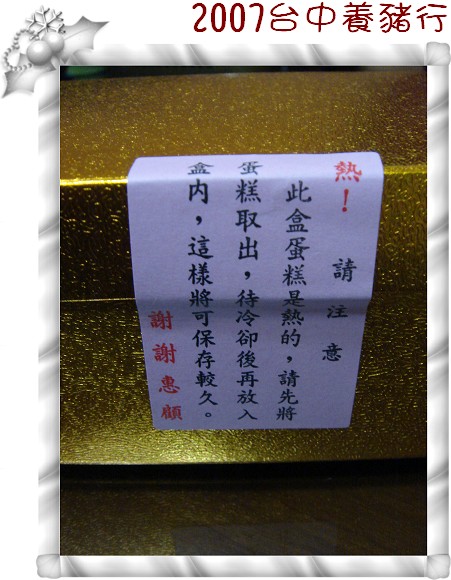 2007台中養豬行
熱！ 請注意
此盒蛋糕是熱的，請先將
蛋糕取出，待冷卻後再放入
盒內，這樣將可保存較久。
謝謝惠顧